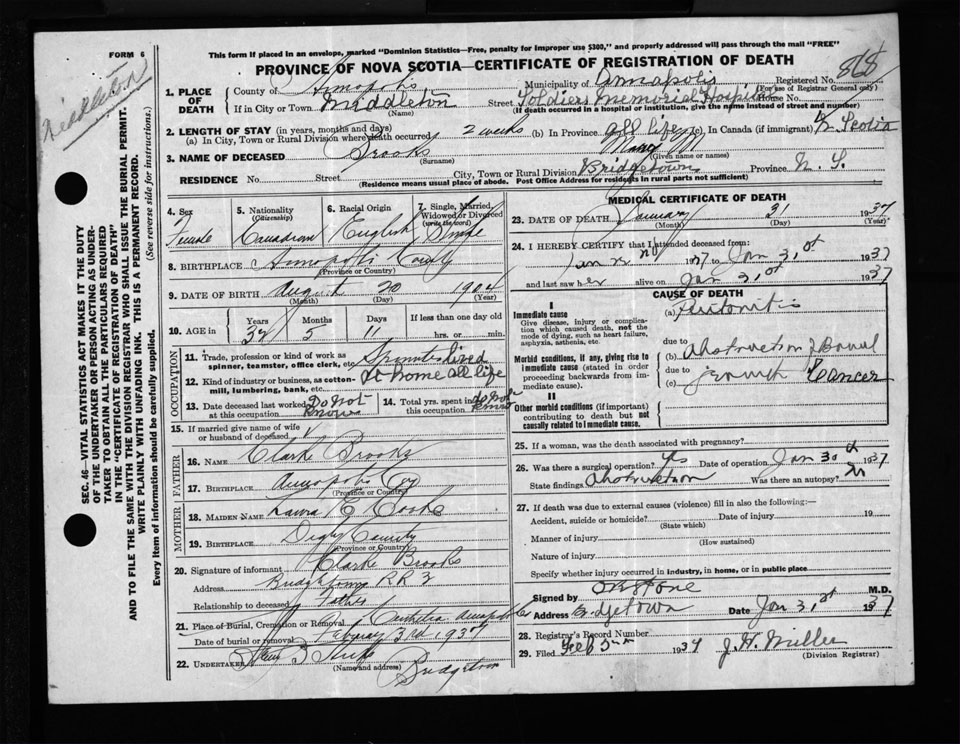 FORM 6
This form if placed in an envelope, marked "Dominion Statistics—Free, penalty for improper use $300," and properly addressed will pass through the mail "FREE"
PROVINCE OF NOVA SCOTIA—CERTIFICATE OF REGISTRATION OF DEATH
Middleton
SEC. 46—VITAL STATISTICS ACT MAKES IT THE DUTY
OF THE UNDERTAKER OR PERSON ACTING AS UNDER-
TAKER TO OBTAIN ALL THE PARTICULARS REQUIRED
IN THE "CERTIFICATE OF REGISTRATION OF DEATH"
AND TO FILE THE SAME WITH THE DIVISION REGISTRAR WHO SHALL ISSUE THE BURIAL PERMIT.
WRITE PLAINLY WITH UNFADING INK. THIS IS A PERMANENT RECORD.
Every item of information should be carefully supplied. (See reverse side for instructions.)
1. PLACE OF DEATH County of Annapolis Municipality of Annapolis Registered No. 868
(For use of Registrar General only)
If in City or Town Middleton Street Soldiers Memorial Hospital House No.
(If death occurred in a hospital or institution, give the name instead of street and number)
2. LENGTH OF STAY (in years, months and days)
(a) In City, Town or Rural Division where death occurred 2 weeks (b) In Province all life (c) In Canada (if immigrant) N Scotia
3. NAME OF DECEASED Brooks Mary M
(Surname) (Given name or names)
RESIDENCE No. Street City, Town or Rural Division Bridgetown Province N. S.
(Residence means usual place of abode. Post Office Address for residents in rural parts not sufficient)
4. Sex Female
5. Nationality (Citizenship) Canadian
6. Racial Origin English
7. Single, Married, Widowed or Divorced (write the word) Single
8. BIRTHPLACE Annapolis County
(Province or Country)
9. DATE OF BIRTH August 20 1904
(Month) (Day) (Year)
10. AGE in Years Months Days If less than one day old
32 5 11 hrs. or min.
OCCUPATION
11. Trade, profession or kind of work as spinner, teamster, office clerk, etc. Spinster lived
12. Kind of industry or business, as cotton-mill, lumbering, bank, etc. at home all life
13. Date deceased last worked at this occupation Do Not Know
14. Total yrs. spent in this occupation Do Not Know
15. If married give name of wife or husband of deceased
FATHER
16. NAME Clarke Brooks
17. BIRTHPLACE Annapolis Coy
(Province or Country)
MOTHER
18. MAIDEN NAME Laura
19. BIRTHPLACE Digby County
(Province or Country)
20. Signature of informant Clarke Brooks
Address Bridgetown R R 3
Relationship to deceased Father
21. Place of Burial, Cremation or Removal Annapolis Co
Date of burial or removal February 3rd 1937
22. UNDERTAKER
(Name and address) Bridgetown
MEDICAL CERTIFICATE OF DEATH
23. DATE OF DEATH January 31 1937
(Month) (Day)
24. I HEREBY CERTIFY that I attended deceased from:
Jan 22nd 1937 to Jan 31st 1937
and last saw her alive on Jan 31st 1937
CAUSE OF DEATH
I
Immediate cause
Give disease, injury or complication which caused death, not the mode of dying, such as heart failure, asphyxia, asthenia, etc.
(a) Peritonitis
Morbid conditions, if any, giving rise to immediate cause (stated in order proceeding backwards from immediate cause).
due to
(b) Obstruction of Bowel
due to
(c) growth Cancer
II
Other morbid conditions (if important) contributing to death but not causally related to immediate cause.
25. If a woman, was the death associated with pregnancy?
26. Was there a surgical operation? yes Date of operation Jan 30th 1937
State findings Obstruction Was there an autopsy?
27. If death was due to external causes (violence) fill in also the following:—
Accident, suicide or homicide? Date of injury 19
(State which)
Manner of injury
(How sustained)
Nature of injury
Specify whether injury occurred in industry, in home, or in public place
Signed by Stone M.D.
Address Bridgetown Date Jan 31st 1937
28. Registrar's Record Number
29. Filed Feb 5th 1937 J. H. Miller
(Division Registrar)